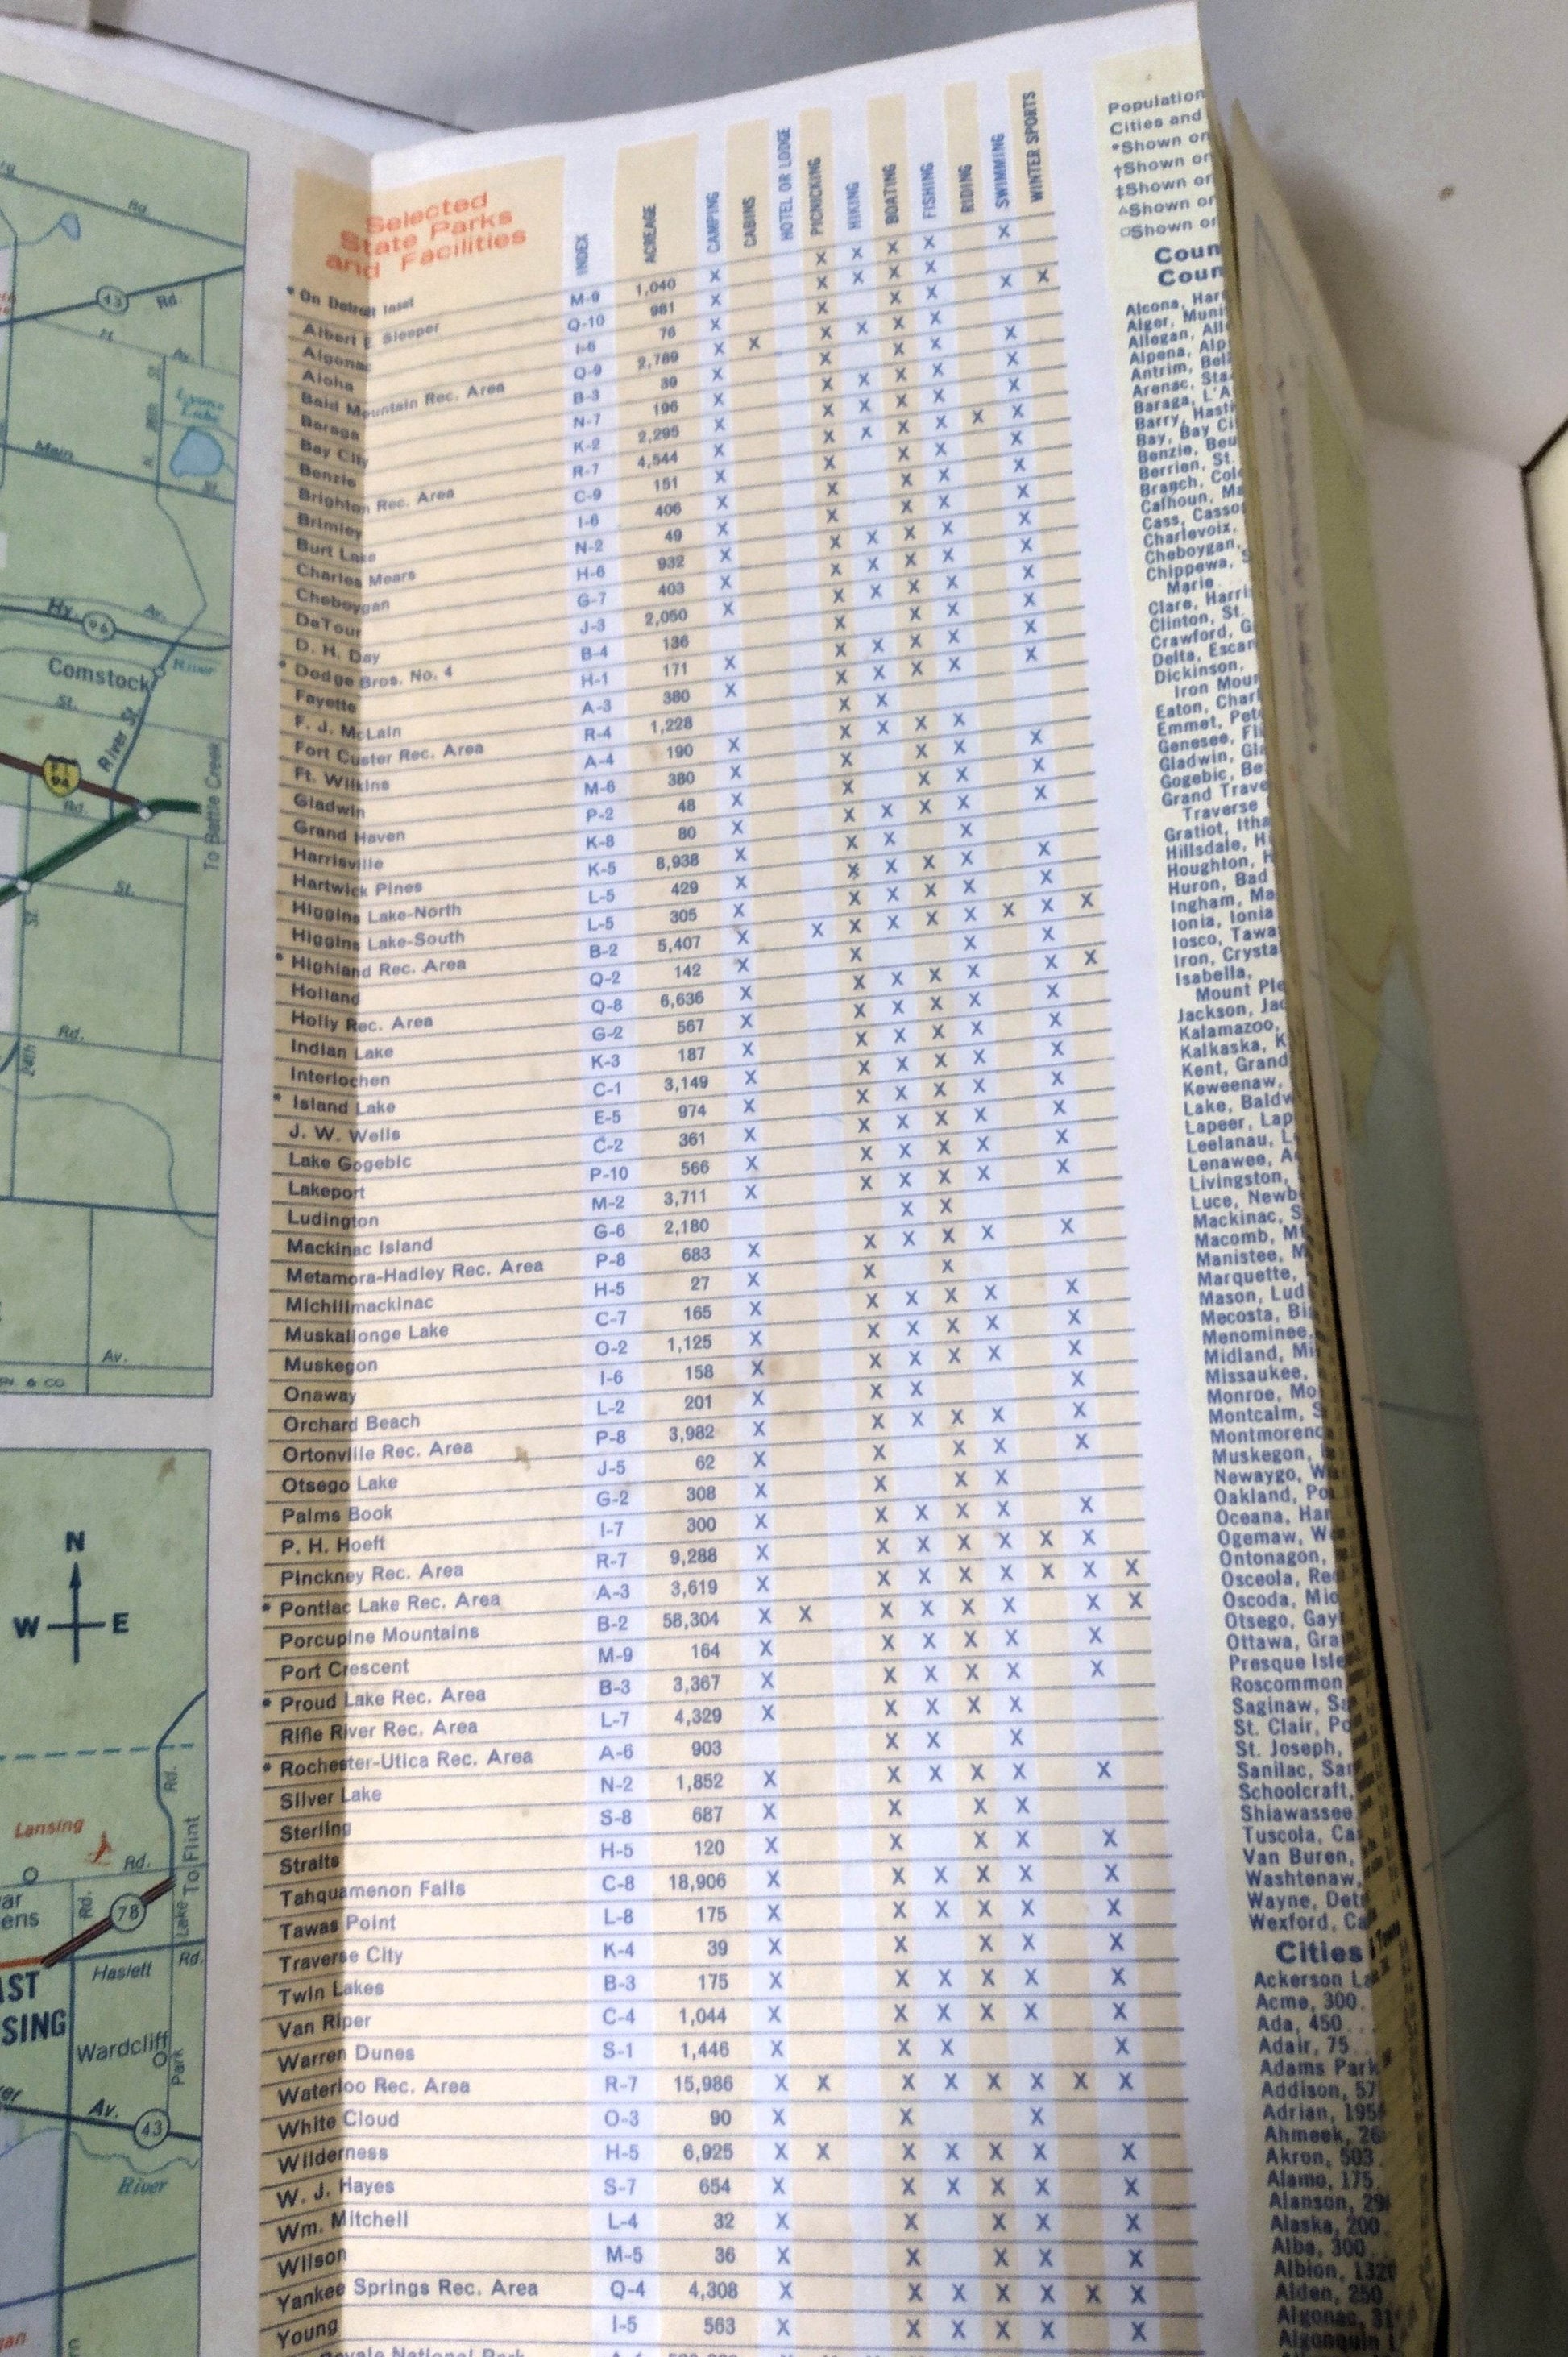 Selected
State Parks
and Facilities
INDEX ACREAGE CAMPING CABINS HOTEL OR LODGE PICNICKING HIKING BOATING FISHING RIDING SWIMMING WINTER SPORTS
* On Detroit Inset
Albert E. Sleeper M-9 1,040 X X X X X X
Algonac Q-10 981 X X X X X
Aloha I-6 76 X X X X X X
Bald Mountain Rec. Area Q-9 2,789 X X X X X X
Baraga B-3 39 X X X X X
Bay City N-7 196 X X X X X X
Benzie K-2 2,295 X X X X X X
Brighton Rec. Area R-7 4,544 X X X X X X X
Brimley C-9 151 X X X X X
Burt Lake I-6 406 X X X X X
Charles Mears N-2 49 X X X X X
Cheboygan H-6 932 X X X X X X
DeTour G-7 403 X X X X X X
D. H. Day J-3 2,050 X X X X X X
* Dodge Bros. No. 4 B-4 136 X X X X
Fayette H-1 171 X X X X X X
F. J. McLain A-3 380 X X X X X X
Fort Custer Rec. Area R-4 1,228 X X
Ft. Wilkins A-4 190 X X X X X
Gladwin M-6 380 X X X X X
Grand Haven P-2 48 X X X X X
Harrisville K-8 80 X X X X X X
Hartwick Pines K-5 8,938 X X X X
Higgins Lake-North L-5 429 X X X X X X
Higgins Lake-South L-5 305 X X X X X X
* Highland Rec. Area B-2 5,407 X X X X X X X X X
Holland Q-2 142 X X X X
Holly Rec. Area Q-8 6,636 X X X X X X X
Indian Lake G-2 567 X X X X X X
Interlochen K-3 187 X X X X X X
* Island Lake C-1 3,149 X X X X X X
J. W. Wells E-5 974 X X X X X X
Lake Gogebic C-2 361 X X X X X X
Lakeport P-10 566 X X X X X X
Ludington M-2 3,711 X X X X X X
Mackinac Island G-6 2,180 X X
Metamora-Hadley Rec. Area P-8 683 X X X X X X
Michilimackinac H-5 27 X X X
Muskallonge Lake C-7 165 X X X X X X
Muskegon O-2 1,125 X X X X X X
Onaway I-6 158 X X X X X X
Orchard Beach L-2 201 X X X X
Ortonville Rec. Area P-8 3,982 X X X X X X
Otsego Lake J-5 62 X X X X X
Palms Book G-2 308 X X X X
P. H. Hoeft I-7 300 X X X X X X
Pinckney Rec. Area R-7 9,288 X X X X X X X
* Pontiac Lake Rec. Area A-3 3,619 X X X X X X X X
Porcupine Mountains B-2 58,304 X X X X X X X X
Port Crescent M-9 164 X X X X X X
* Proud Lake Rec. Area B-3 3,367 X X X X X X
Rifle River Rec. Area L-7 4,329 X X X X X
* Rochester-Utica Rec. Area A-6 903 X X X
Silver Lake N-2 1,852 X X X X X X
Sterling S-8 687 X X X X
Straits H-5 120 X X X X X
Tahquamenon Falls C-8 18,906 X X X X X X
Tawas Point L-8 175 X X X X X X
Traverse City K-4 39 X X X X X
Twin Lakes B-3 175 X X X X X X
Van Riper C-4 1,044 X X X X X X
Warren Dunes S-1 1,446 X X X X
Waterloo Rec. Area R-7 15,986 X X X X X X X X
White Cloud O-3 90 X X X
Wilderness H-5 6,925 X X X X X X X
W. J. Hayes S-7 654 X X X X X X
Wm. Mitchell L-4 32 X X X X X
Wilson M-5 36 X X X X X
Yankee Springs Rec. Area Q-4 4,308 X X X X X X X
Young I-5 563 X X X X X X
National Park
Population
Cities and
*Shown on
†Shown on
‡Shown on
△Shown or
□Shown or
Coun
Coun
Alcona, Har
Alger, Muni
Allegan, All
Alpena, Alp
Antrim, Bel
Arenac, Sta
Baraga, L'A
Barry, Hasti
Bay, Bay Ci
Benzie, Beu
Berrien, St.
Branch, Col
Calhoun, Ma
Cass, Casso
Charlevoix,
Cheboygan,
Chippewa, S
Marie
Clare, Harri
Clinton, St.
Crawford, G
Delta, Escan
Dickinson,
Iron Moun
Eaton, Charl
Emmet, Pet
Genesee, Fli
Gladwin, Gla
Gogebic, Be
Grand Trave
Traverse
Gratiot, Itha
Hillsdale, Hi
Houghton, H
Huron, Bad
Ingham, Ma
Ionia, Ionia
Iosco, Tawa
Iron, Crysta
Isabella,
Mount Ple
Jackson, Jac
Kalamazoo,
Kalkaska, K
Kent, Grand
Keweenaw,
Lake, Baldw
Lapeer, Lap
Leelanau, L
Lenawee, A
Livingston,
Luce, Newb
Mackinac, S
Macomb, M
Manistee, M
Marquette,
Mason, Lud
Mecosta, Bi
Menominee,
Midland, Mi
Missaukee,
Monroe, Mo
Montcalm, S
Montmorenc
Muskegon,
Newaygo, W
Oakland, Po
Oceana, Har
Ogemaw, W
Ontonagon,
Osceola, Re
Oscoda, Mio
Otsego, Gay
Ottawa, Gra
Presque Isle
Roscommon
Saginaw, Sa
St. Clair, Po
St. Joseph,
Sanilac, San
Schoolcraft,
Shiawassee
Tuscola, Ca
Van Buren,
Washtenaw,
Wayne, Det
Wexford, Ca
Cities
Ackerson La
Acme, 300
Ada, 450
Adair, 75
Adams Park
Addison, 57
Adrian, 195
Ahmeek, 26
Akron, 503
Alamo, 175
Alanson, 29
Alaska, 200
Alba, 300
Albion, 132
Alden, 250
Algonac, 31
Algonquin L
Rd.
43
Rd.
Av.
Lyons
Lake
Main
St.
Hy. 96
Av.
Comstock
River
St.
River St.
94
Rd.
St.
To Battle Creek
St.
Rd.
24th
Av.
EN. & CO.
N
W E
Lansing
Rd.
Rd.
78
Lake
To Flint
ar
ens
Haslett
Rd.
AST
SING
Wardcliff
Park
Av.
43
River